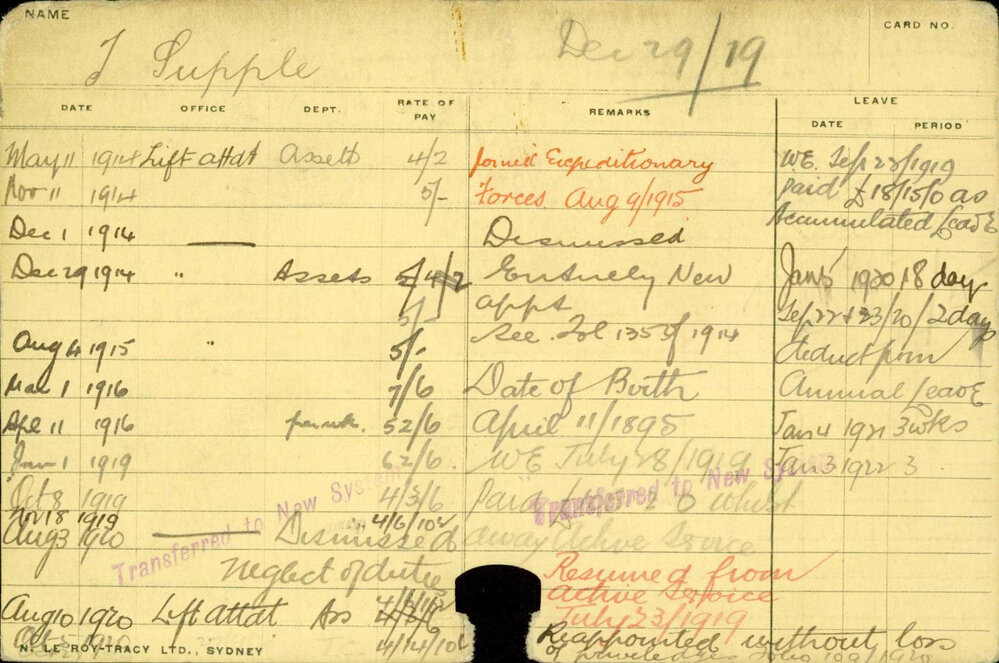 NAME
CARD NO.
J Supple Dec 29/19
DATE OFFICE DEPT. RATE OF PAY REMARKS LEAVE
DATE PERIOD
May 11 1914 Lift attdt Assets 4/2 Joined Expeditionary W.E. Sep 28/1919
Nov 11 1914 5/- Forces Aug 9/1915 paid £18/15/0 as
Accumulated Leave
Dec 1 1914 Dismissed
Dec 29 1914 " Assets 4/2 Entirely New Jan 5 1920 18 day
5/- appt Sep 22 & 23/20/2 days
See Fol 135 of 1914
Aug 4 1915 " 5/- deduct from
Mar 1 1916 7/6 Date of Birth Annual Leave
Apl 11 1916 per wk. 52/6 April 11/1895 Jan 4 1921 3 wks
Jan 1 1919 62/6. WE July 28/1919 Jan 3 1922 3
Oct 8 1919 4/3/6 Paid whilst
Nov 18 1919 4/6/10
Aug 3 1920 Dismissed away Active Service
Transferred to New System
Transferred to New System
Neglect of duties Resumed from
Active Service
Aug 10 1920 Lift attdt Ass July 23/1919
4/14/10 Reappointed without loss
of privileges
N. LE ROY-TRACY LTD., SYDNEY